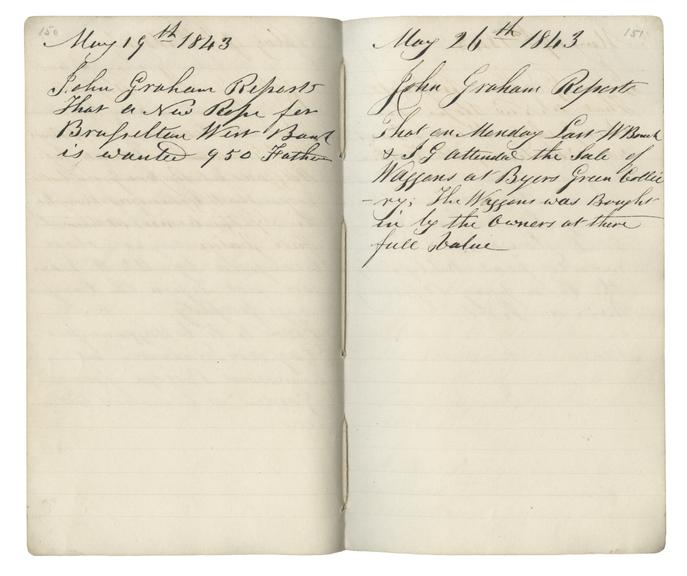 150
May 19th 1843
John Graham Reports
That a New Rope for
Brusselton West Bank
is wanted 950 Fathm
151
May 26th 1843
John Graham Reports
That on Monday Last W Bouch
& J G attended the Sale of
Waggons at Byers Green Collie
-ry; The Waggons was Bought
in by the Owners at there
full Value